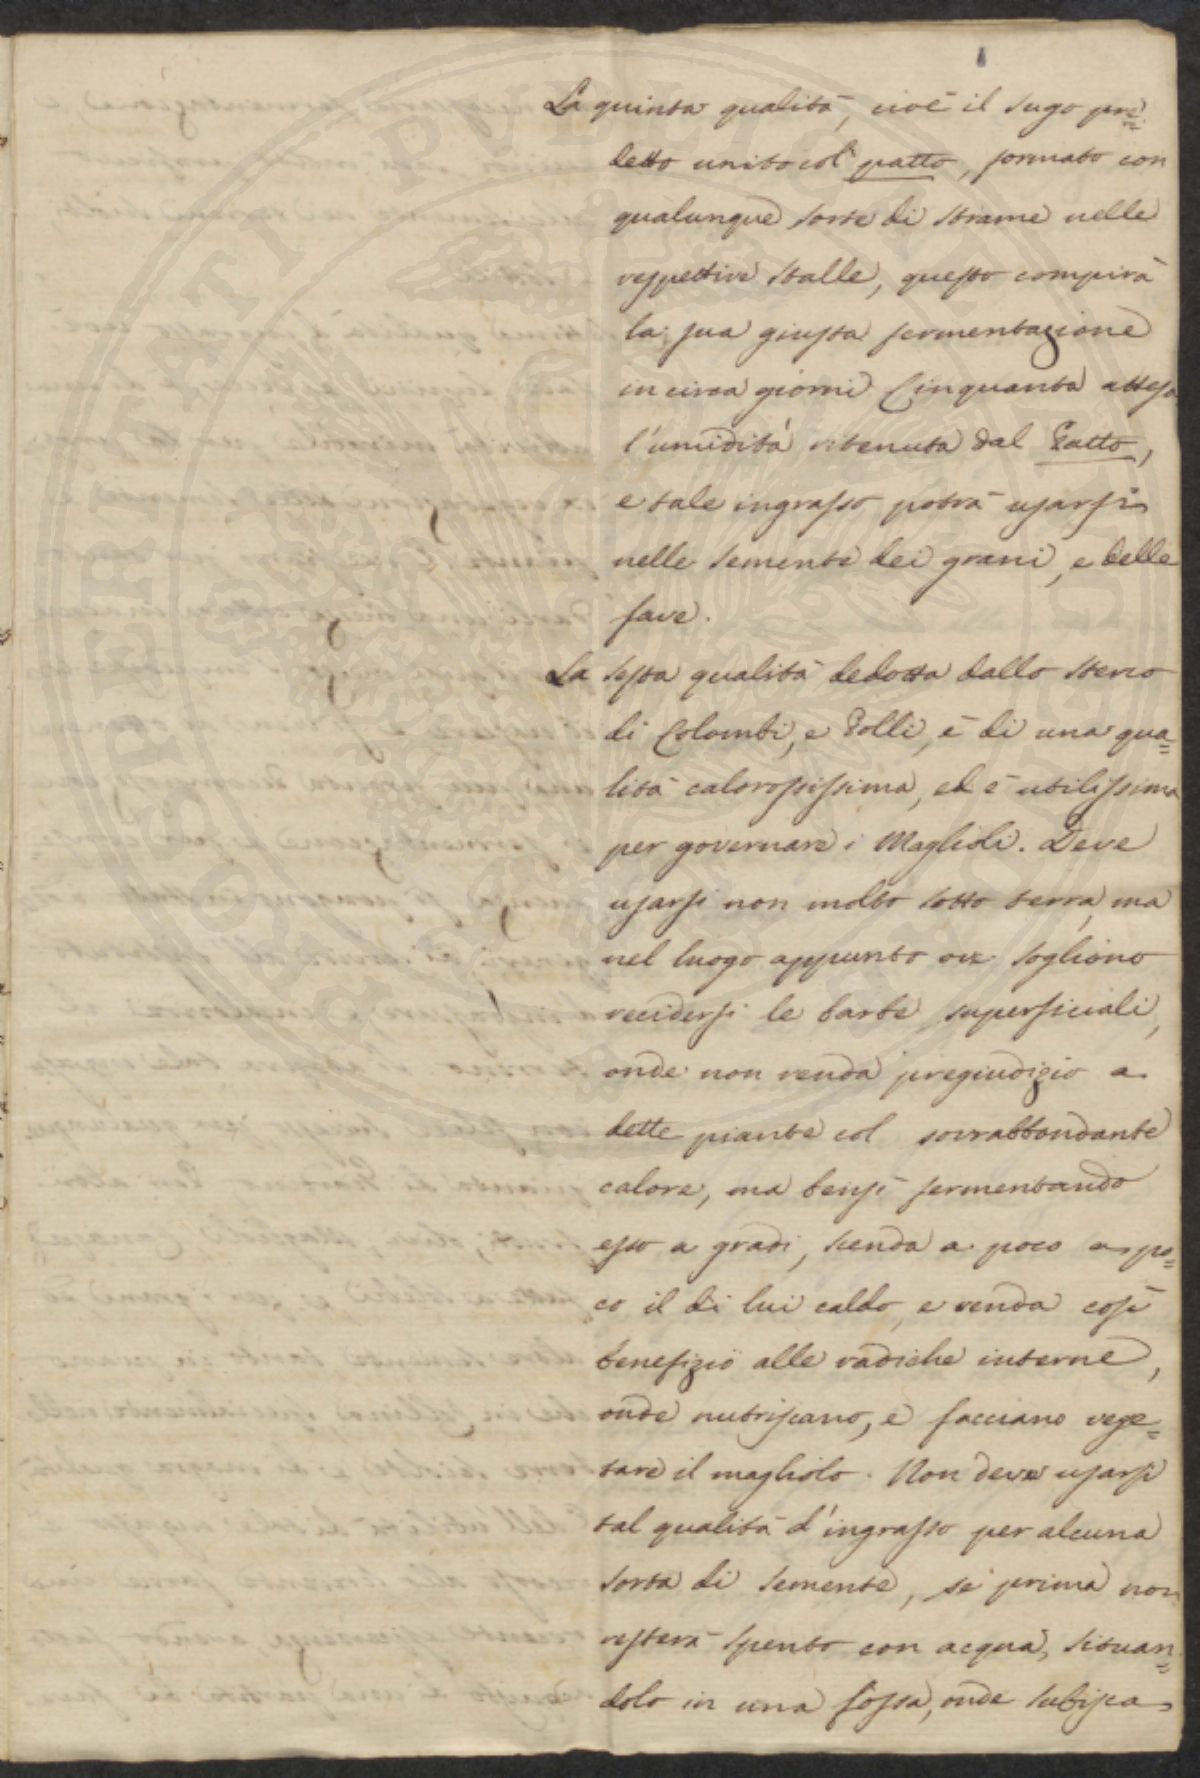 La quinta qualità, cioè il sugo pre=
detto unito col patto, formato con
qualunque sorte di strame nelle
respettive stalle, questo compirà
la sua giusta fermentazione
in circa giorni Cinquanta attesa
l'umidità ritenuta dal Patto,
e tale ingrasso potrà usarsi
nelle semente dei grani, e delle
fave.
La sesta qualità dedotta dallo sterco
di Colombi, e Polli, è di una qua=
lità calorosissima, ed è utilissima
per governare i Maglioli. Deve
usarsi non molto sotto terra, ma
nel luogo appunto ove sogliono
recidersi le barbe superficiali,
onde non renda pregiudizio a
dette piante col sovrabbondante
calore, ma bensì fermentando
esso a gradi, scenda a poco a po=
co il di lui caldo, e renda così
benefizio alle radiche interne,
onde nutriscano, e facciano vege=
tare il magliolo. Non deve usarsi
tal qualità d'ingrasso per alcuna
sorta di semente, se prima non
resterà spento con acqua, situan=
dolo in una fossa, onde subisca